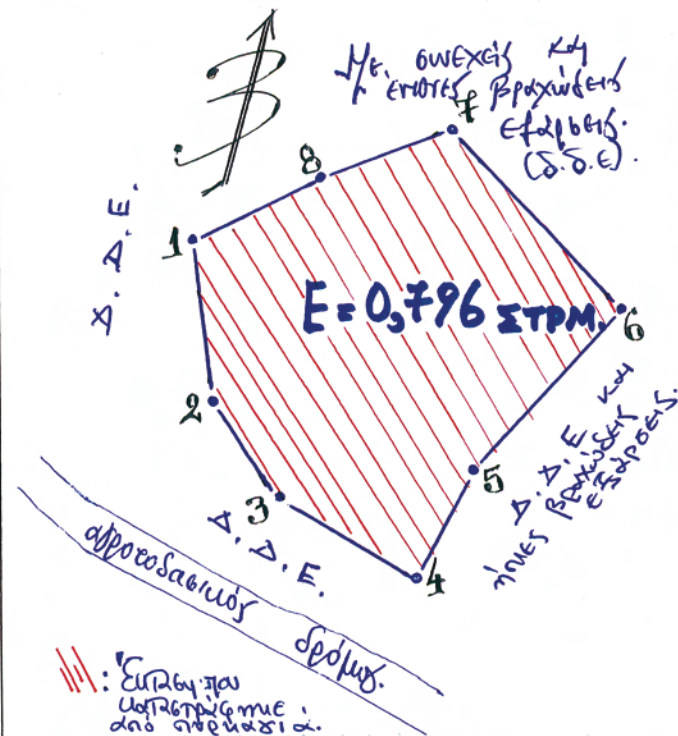 Με συνεχείς και
έντονες βραχώδεις
εξάρσεις.
(δ.δ.ε).
7
8
Δ.Δ.Ε.
1
Ε=0,796 ΣΤΡΜ.
6
2
Δ.Δ.Ε και
ήπιες βραχώδεις
εξάρσεις.
5
3
Δ.Δ.Ε.
4
αγροτοδασικός δρόμος.
: Έκταση που
καταστράφηκε
από πυρκαγιά.